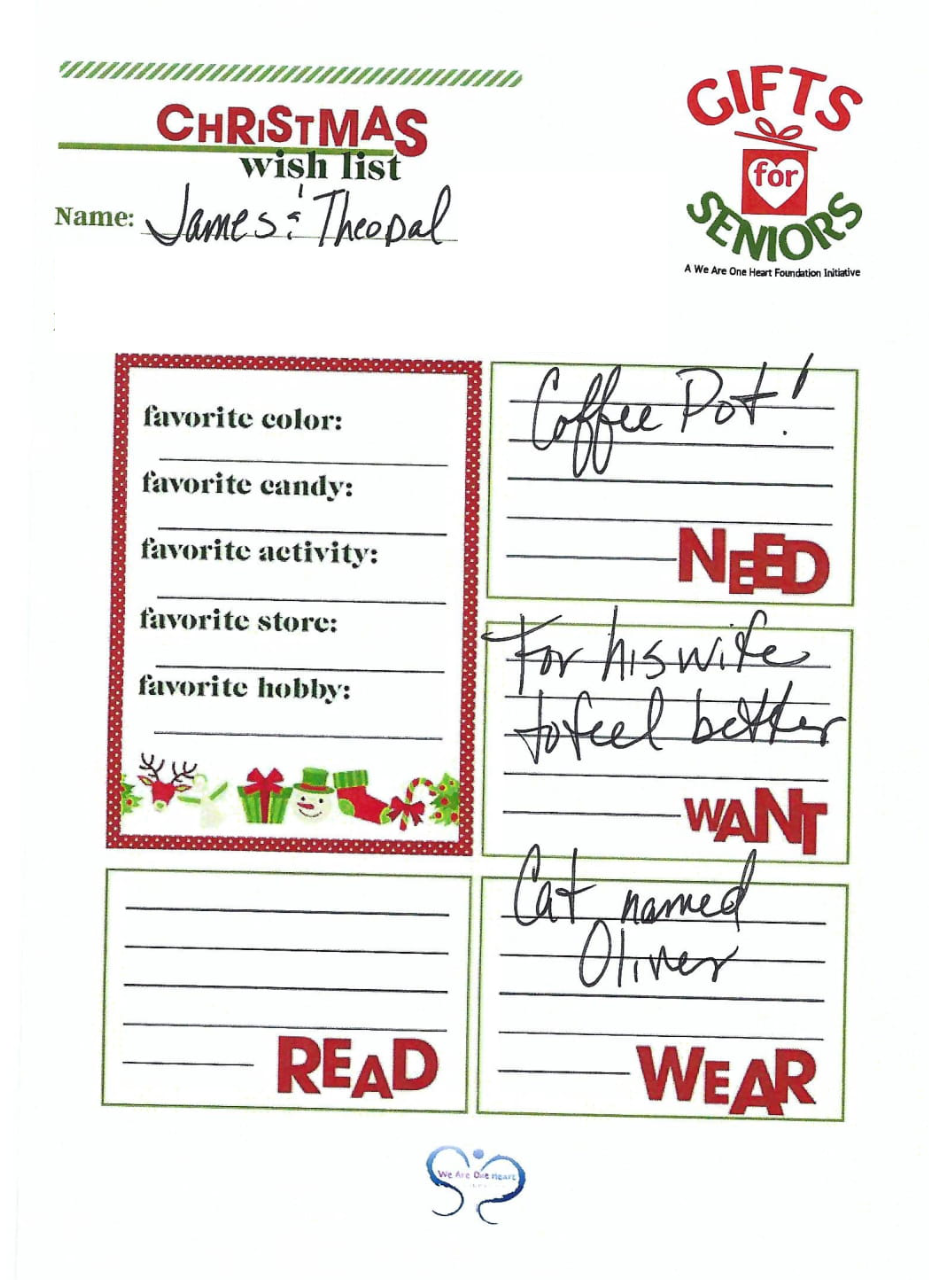 CHRISTMAS
wish list
Name: James & Theopal
GIFTS
for
SENIORS
A We Are One Heart Foundation Initiative
favorite color:
favorite candy:
favorite activity:
favorite store:
favorite hobby:
Coffee Pot!
NEED
For his wife
to feel better
WANT
Cat named
Oliver
WEAR
READ
We Are One Heart